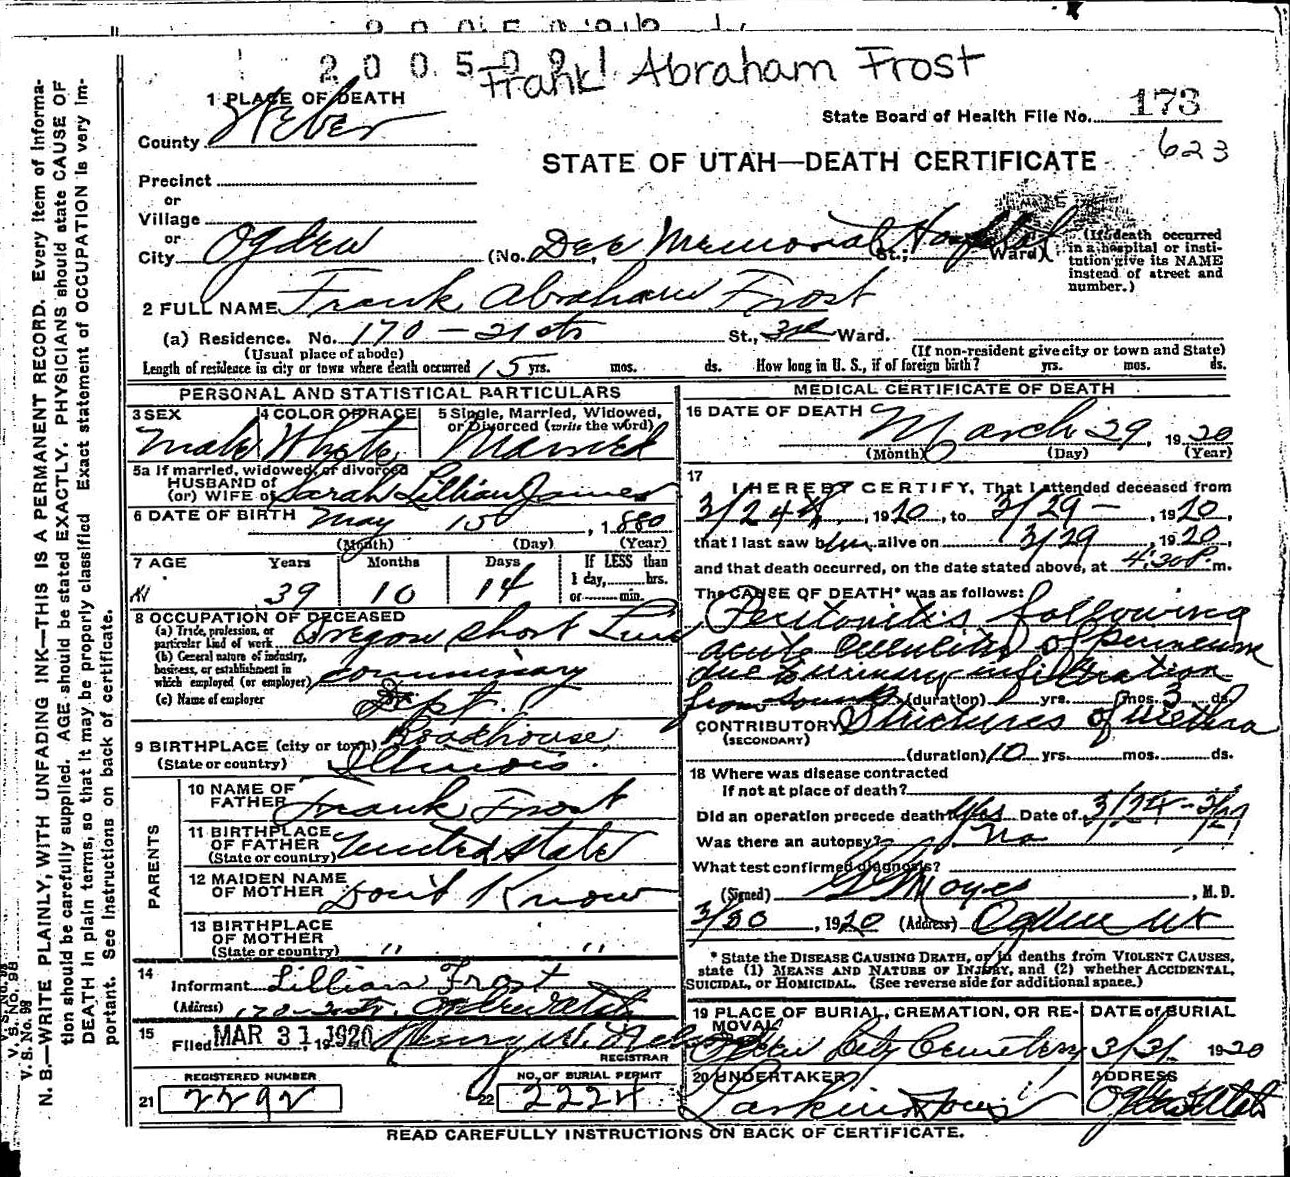 2 0 0 5 0 0
Frank Abraham Frost
1 PLACE OF DEATH
State Board of Health File No. 173
County Weber
623
STATE OF UTAH—DEATH CERTIFICATE
Precinct
or
Village
or
City Ogden (No. Dee Memorial Hospital St.; Ward) (If death occurred in a hospital or institution give its NAME instead of street and number.)
2 FULL NAME Frank Abraham Frost
(a) Residence. No. 170 - 21 st St., 3rd Ward.
(Usual place of abode) (If non-resident give city or town and State)
Length of residence in city or town where death occurred 15 yrs. mos. ds. How long in U. S., if of foreign birth? yrs. mos. ds.
PERSONAL AND STATISTICAL PARTICULARS
3 SEX Male
4 COLOR OR RACE White
5 Single, Married, Widowed, or Divorced (write the word) Married
5a If married, widowed, or divorced
HUSBAND of
(or) WIFE of Sarah Lillian James
6 DATE OF BIRTH May 15, 1880
(Month) (Day) (Year)
7 AGE Years 39 Months 10 Days 14 If LESS than 1 day, hrs. or min.
8 OCCUPATION OF DECEASED
(a) Trade, profession, or particular kind of work Oregon Short Line
(b) General nature of industry, business, or establishment in which employed (or employer) Commissary
(c) Name of employer Dept.
9 BIRTHPLACE (city or town) Roadhouse,
(State or country) Illinois.
PARENTS
10 NAME OF FATHER Frank Frost
11 BIRTHPLACE OF FATHER (State or country) United State
12 MAIDEN NAME OF MOTHER Dont Know
13 BIRTHPLACE OF MOTHER (State or country) " "
14
Informant Lillian Frost
(Address) Ogden Utah
15 Filed MAR 31 1920, 19 Henry W.
REGISTRAR
REGISTERED NUMBER
21 2292
NO. OF BURIAL PERMIT
22 2224
MEDICAL CERTIFICATE OF DEATH
16 DATE OF DEATH March 29, 1920
(Month) (Day) (Year)
17
I HEREBY CERTIFY, That I attended deceased from
3/24, 1920, to 3/29 -, 1920,
that I last saw him alive on 3/29 1920,
and that death occurred, on the date stated above, at 4:30 P. m.
The CAUSE OF DEATH* was as follows:
Peritonitis following
acute cellulitis of perineum
due to urinary infiltration
from (duration) yrs. mos. 3 ds.
CONTRIBUTORY Strictures of urethra
(SECONDARY)
(duration) 10 yrs. mos. ds.
18 Where was disease contracted
if not at place of death?
Did an operation precede death? Yes Date of 3/24 - 3/27
Was there an autopsy? No
What test confirmed diagnosis?
(Signed) Moyes, M. D.
3/30, 1920 (Address) Ogden Ut
* State the DISEASE CAUSING DEATH, or in deaths from VIOLENT CAUSES,
state (1) MEANS AND NATURE OF INJURY, and (2) whether ACCIDENTAL,
SUICIDAL, or HOMICIDAL. (See reverse side for additional space.)
19 PLACE OF BURIAL, CREMATION, OR REMOVAL Ogden City Cemetery
DATE OF BURIAL 3/31 1920
20 UNDERTAKER Larkin & Sons
ADDRESS Ogden Utah
READ CAREFULLY INSTRUCTIONS ON BACK OF CERTIFICATE.
V. S. No. 98
N. B.—WRITE PLAINLY, WITH UNFADING INK—THIS IS A PERMANENT RECORD. Every item of information should be carefully supplied. AGE should be stated EXACTLY. PHYSICIANS should state CAUSE OF DEATH in plain terms, so that it may be properly classified. Exact statement of OCCUPATION is very important. See Instructions on back of certificate.